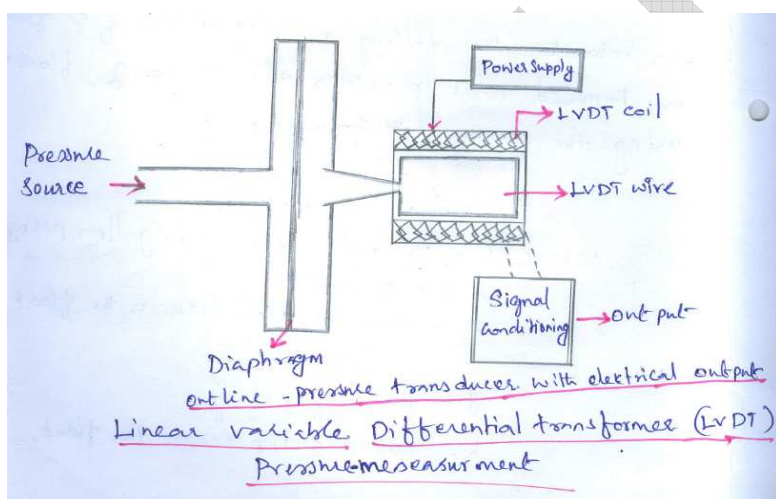 Power Supply
LVDT coil
Pressure
Source
LVDT wire
Signal
Conditioning
output
Diaphragm
outline - pressure transducer with electrical output
Linear variable Differential transformer (LvDT)
Pressure meseasurment